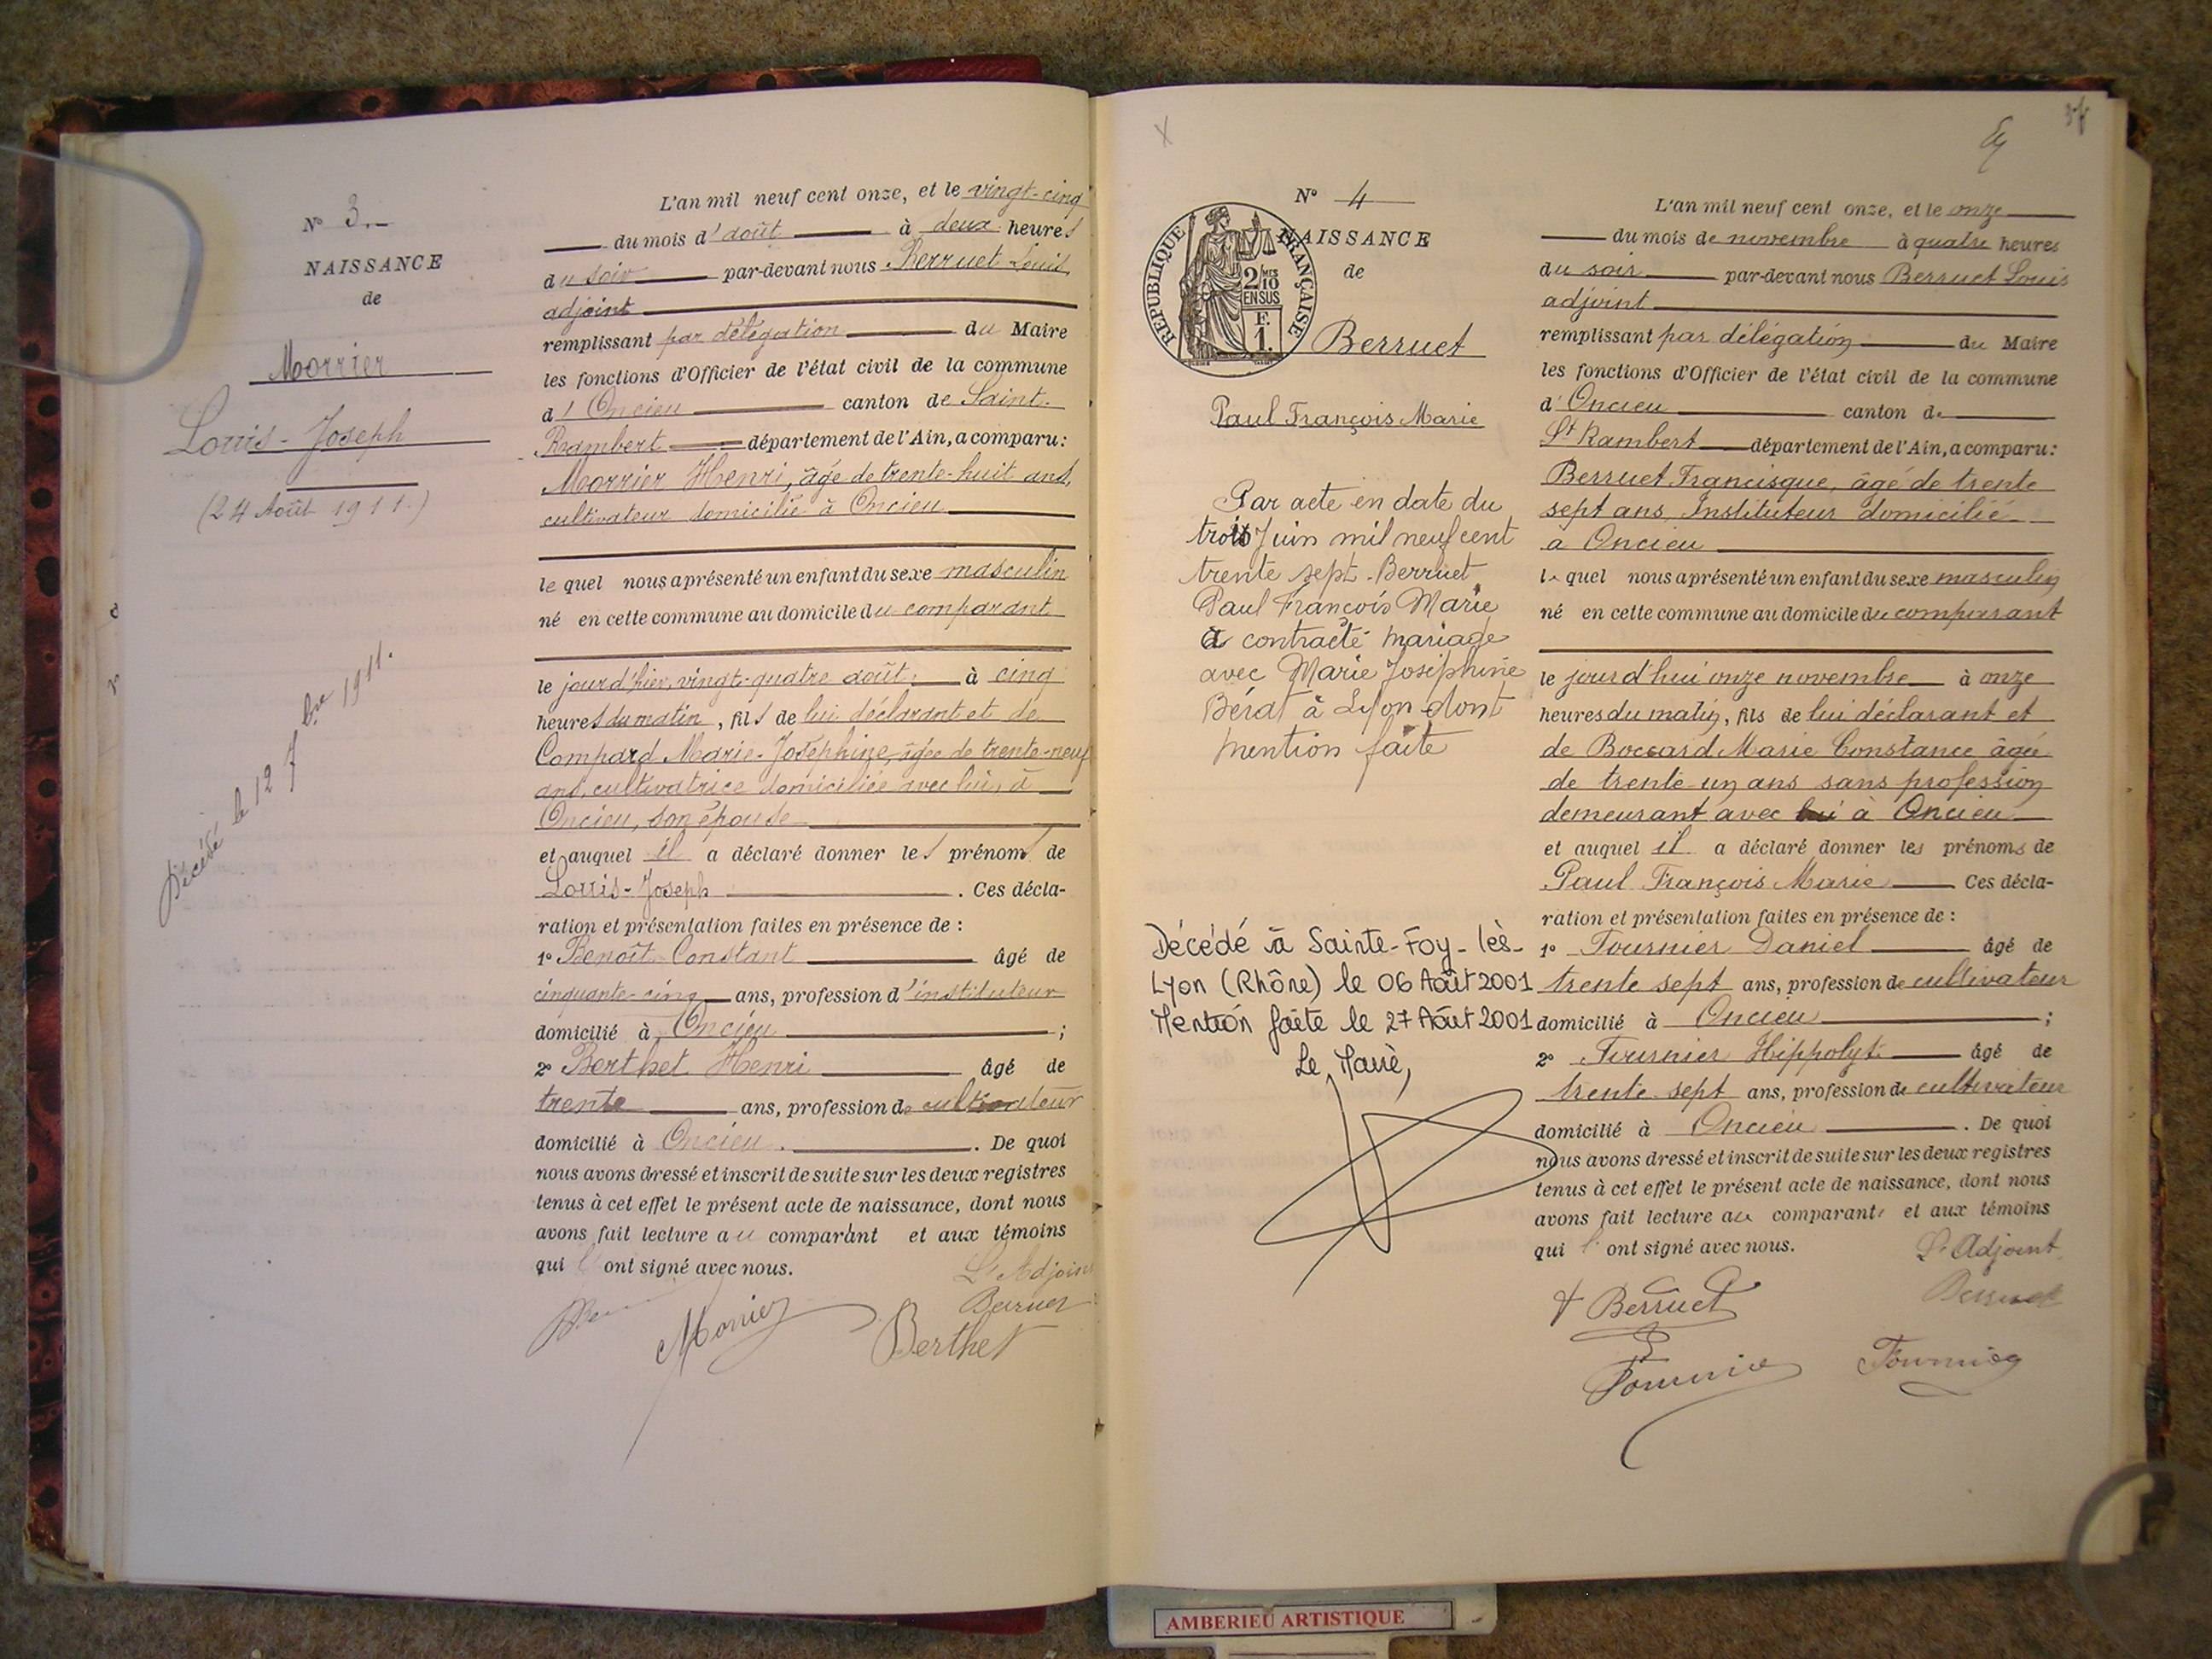 N° 3.
NAISSANCE
de
Morrier
Louis-Joseph
(24 Août 1911.)
Décédé le 12 7bre 1911.
L'an mil neuf cent onze, et le vingt-cinq
du mois d'août à deux heures
du soir par-devant nous Berruet Louis,
adjoint
remplissant par délégation du Maire
les fonctions d'Officier de l'état civil de la commune
d'Oncieu canton de Saint-
Rambert département de l'Ain, a comparu:
Morrier Henri, âgé de trente-huit ans,
cultivateur domicilié à Oncieu
le quel nous a présenté un enfant du sexe masculin
né en cette commune au domicile du comparant
le jour d'hier, vingt-quatre août, à cinq
heures du matin, fils de lui déclarant et de
Compard Marie-Joséphine, âgée de trente-neuf
ans, cultivatrice domiciliée avec lui, à
Oncieu, son épouse
et auquel il a déclaré donner les prénoms de
Louis-Joseph. Ces décla-
ration et présentation faites en présence de :
1° Benoît Constant âgé de
cinquante-cinq ans, profession d'instituteur
domicilié à Oncieu ;
2° Berthet Henri âgé de
trente ans, profession de cultivateur
domicilié à Oncieu. De quoi
nous avons dressé et inscrit de suite sur les deux registres
tenus à cet effet le présent acte de naissance, dont nous
avons fait lecture au comparant et aux témoins
qui l'ont signé avec nous.
L'Adjoint
Berruet
Morrier
Berthet
N° 4
NAISSANCE
de
RÉPUBLIQUE FRANÇAISE
2/10 MES
EN SUS
F.
1.
Berruet
Paul François Marie
Par acte en date du
trois Juin mil neuf cent
trente sept. Berruet
Paul François Marie
a contracté mariage
avec Marie Joséphine
Bérat à Lyon dont
mention faite
Décédé à Sainte-Foy-lès-
Lyon (Rhône) le 06 Août 2001
Mention faite le 27 Août 2001
Le Maire,
L'an mil neuf cent onze, et le onze
du mois de novembre à quatre heures
du soir par-devant nous Berruet Louis
adjoint
remplissant par délégation du Maire
les fonctions d'Officier de l'état civil de la commune
d'Oncieu canton de
St Rambert département de l'Ain, a comparu:
Berruet Francisque, âgé de trente
sept ans, Instituteur domicilié
à Oncieu
le quel nous a présenté un enfant du sexe masculin
né en cette commune au domicile du comparant
le jour d'hui onze novembre à onze
heures du matin, fils de lui déclarant et
de Boccard Marie Constance âgée
de trente un ans sans profession
demeurant avec lui à Oncieu
et auquel il a déclaré donner les prénoms de
Paul François Marie Ces décla-
ration et présentation faites en présence de :
1° Fournier Daniel âgé de
trente sept ans, profession de cultivateur
domicilié à Oncieu ;
2° Fournier Hippolyte âgé de
trente sept ans, profession de cultivateur
domicilié à Oncieu. De quoi
nous avons dressé et inscrit de suite sur les deux registres
tenus à cet effet le présent acte de naissance, dont nous
avons fait lecture au comparant et aux témoins
qui l'ont signé avec nous.
L'Adjoint
Berruet
F Berruet
Fournier
Fournier
AMBERIEU ARTISTIQUE